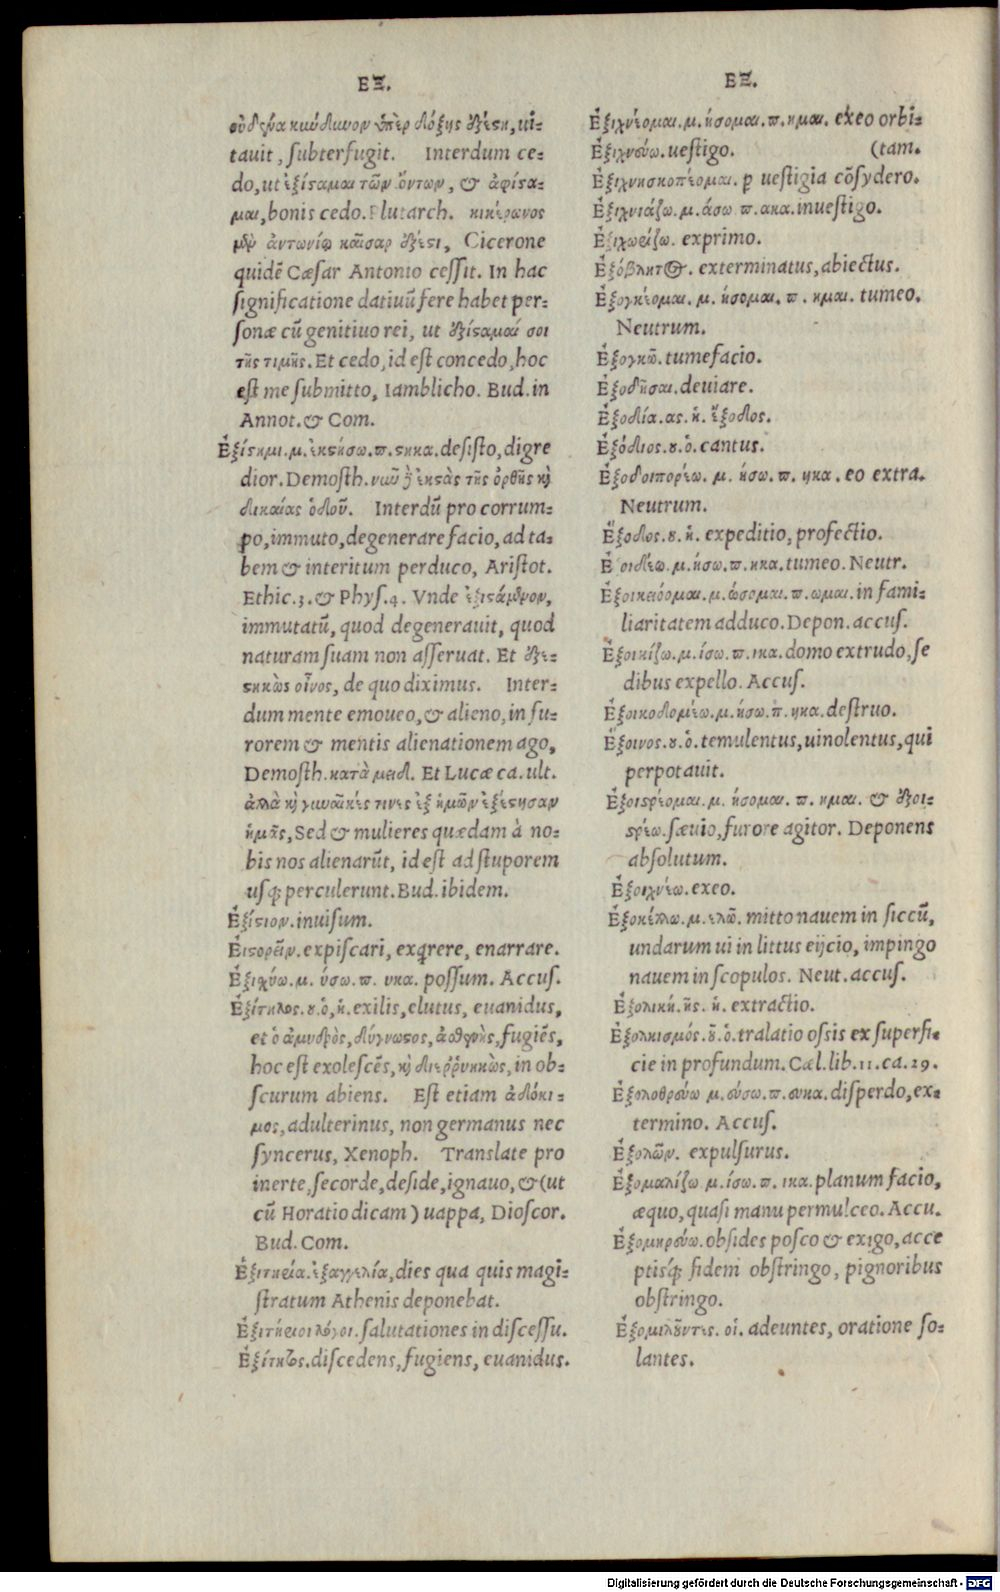 ΕΞ.
οὐδένα κίνδυνον ὑπὲρ δόξης ἐξέστη, ui-
tauit, ſubterfugit. Interdum ce-
do, ut ἐξίσταμαι τῶν ὄντων, & ἀφίστα-
μαι, bonis cedo. Plutarch. κικέρωνος
μὲν ἀντωνίῳ καῖσαρ ἐξέστη, Cicerone
quidē Cæſar Antonio ceſſit. In hac
ſignificatione datiuū fere habet per-
ſonæ cū genitiuo rei, ut ἐξίσταμαί σοι
τῆς τιμῆς. Et cedo, id eſt concedo, hoc
eſt me ſubmitto, Iamblicho. Bud. in
Annot. & Com.
Ἐξίστημι. μ. ἐκστήσω. π. στηκα. deſiſto, digre
dior. Demoſth. νῦν δ' ἐκστὰς τῆς ὀρθῆς καὶ
δικαίας ὁδοῦ. Interdū pro corrum-
po, immuto, degenerare facio, ad ta-
bem & interitum perduco, Ariſtot.
Ethic. 3. & Phyſ. 4. Vnde ἐξιστάμενον,
immutatū, quod degenerauit, quod
naturam ſuam non aſſeruat. Et ἐξε-
στηκὼς οἶνος, de quo diximus. Inter-
dum mente emoueo, & alieno, in fu-
rorem & mentis alienationem ago,
Demoſth. κατὰ μειδ. Et Lucæ ca. ult.
ἀλλὰ καὶ γυναῖκές τινες ἐξ ἡμῶν ἐξέστησαν
ἡμᾶς, Sed & mulieres quædam à no-
bis nos alienarūt, id eſt ad ſtuporem
uſq; perculerunt. Bud. ibidem.
Ἐξίστιον. inuiſum.
Ἐξιστορεῖν. expiſcari, exq̄rere, enarrare.
Ἐξισχύω. μ. ύσω. π. υκα. poſſum. Accuſ.
Ἐξίτηλος. ου. ὁ, ἡ. exilis, elutus, euanidus,
et ὁ ἀμυδρὸς, δύγνωστος, ἀσθενὴς, fugiēs,
hoc eſt exoleſcēs, καὶ διερρυηκὼς, in ob-
ſcurum abiens. Eſt etiam ἀδόκι-
μος, adulterinus, non germanus nec
ſyncerus, Xenoph. Translate pro
inerte, ſecorde, deſide, ignauo, & (ut
cū Horatio dicam) uappa, Dioſcor.
Bud. Com.
Ἐξιτηεία. ἐξαγγελία, dies qua quis magi-
ſtratum Athenis deponebat.
Ἐξιτήειοι λόγοι. ſalutationes in diſceſſu.
Ἐξίτητος. diſcedens, fugiens, euanidus.
ΕΞ.
Ἐξιχνέομαι. μ. ήσομαι. π. ημαι. exeo orbi-
Ἐξιχνεύω. ueſtigo. (tam.
Ἐξιχνησκοπέομαι. p ueſtigia cōſydero.
Ἐξιχνιάζω. μ. άσω π. ακα. inueſtigo.
Ἐξιχωρίζω. exprimo.
Ἐξόβλητος. exterminatus, abiectus.
Ἐξογκέομαι. μ. ήσομαι. π. ημαι. tumeo.
Neutrum.
Ἐξογκῶ. tumefacio.
Ἐξοδῆσαι. deuiare.
Ἐξοδία. ας. ἡ. ἔξοδος.
Ἐξόδιος. ου. ὁ. cantus.
Ἐξοδοιπορέω. μ. ήσω. π. ηκα. eo extra.
Neutrum.
Ἔξοδος. ου. ἡ. expeditio, profectio.
Ἐξοιδέω. μ. ήσω. π. ηκα. tumeo. Neutr.
Ἐξοικειόομαι. μ. ώσομαι. π. ωμαι. in fami-
liaritatem adduco. Depon. accuſ.
Ἐξοικίζω. μ. ίσω. π. ικα. domo extrudo, ſe
dibus expello. Accuſ.
Ἐξοικοδομέω. μ. ήσω. π. ηκα. deſtruo.
Ἔξοινος. ου. ὁ. temulentus, uinolentus, qui
perpotauit.
Ἐξοιστρέομαι. μ. ήσομαι. π. ημαι. & ἐξοι-
στρέω. ſæuio, furore agitor. Deponens
abſolutum.
Ἐξοιχνέω. exeo.
Ἐξοκέλλω. μ. ελῶ. mitto nauem in ſiccū,
undarum ui in littus eijcio, impingo
nauem in ſcopulos. Neut. accuſ.
Ἐξολκή. ῆς. ἡ. extractio.
Ἐξολκισμός. οῦ. ὁ. tralatio oſsis ex ſuperfi-
cie in profundum. Cæl. lib. 11. ca. 29.
Ἐξολοθρεύω μ. εύσω. π. ευκα. diſperdo, ex-
termino. Accuſ.
Ἐξολῶν. expulſurus.
Ἐξομαλίζω μ. ίσω. π. ικα. planum facio,
æquo, quaſi manu permulceo. Accu.
Ἐξομηρεύω. obſides poſco & exigo, acce
ptisq́; fidem obſtringo, pignoribus
obſtringo.
Ἐξομιλοῦντες. οἱ. adeuntes, oratione ſo-
lantes.
Digitalisierung gefördert durch die Deutsche Forschungsgemeinschaft - DFG